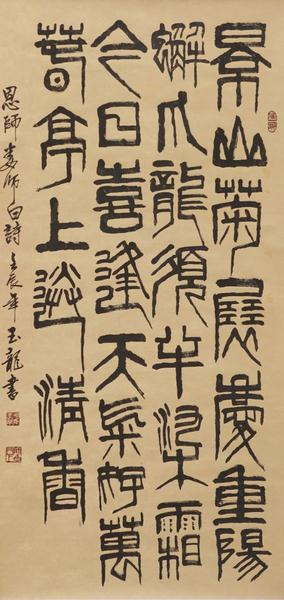 景山菊展慶重陽
蠏爪龍須半沐霜
今日喜逢天氣好萬
春亭上送清香
恩師婁師白詩壬辰年玉龍書